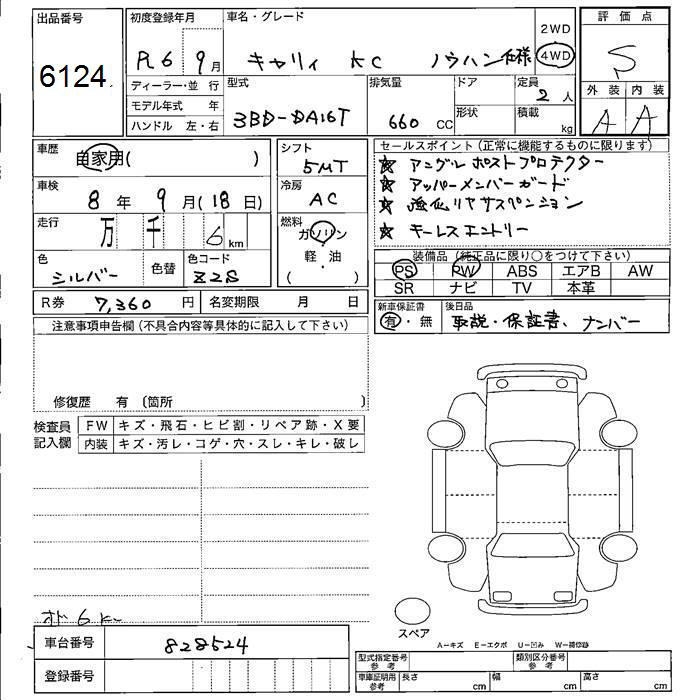 出品番号
6124
初度登録年月
R6 9月
ディーラー・並 行
モデル年式 年
ハンドル 左・右
車名・グレード
キャリィ KC ノウハン仕様
2WD
4WD
型式
3BD-DA16T
排気量
660 CC
ドア
形状
定員
2 人
積載
kg
評 価 点
S
外 装 内 装
A A
車歴
自家用( )
車検
8 年 9 月(18 日)
走行
万 千 6 km
色
シルバー
色替
色コード
Z2S
シフト
5MT
冷房
AC
燃料
ガソリン
軽・油
( )
R券 7,360 円
名変期限 月 日
セールスポイント(正常に機能するものに限ります)
★ アングルポストプロテクター
★ アッパーメンバーガード
★ 強化リヤサスペンション
★ キーレスエントリー
装備品(純正品に限り○をつけて下さい)
PS PW ABS エアB AW
SR ナビ TV 本革
新車保証書
有・無
後日品
取説・保証書、ナンバー
注意事項申告欄(不具合内容等具体的に記入して下さい)
修復歴 有 (箇所 )
検査員
記入欄
FW キズ・飛石・ヒビ割・リペア跡・X要
内装 キズ・汚レ・コゲ・穴・スレ・キレ・破レ
オド 6 km
車台番号
828524
登録番号
スペア
A−キズ E−エクボ U−凹み W−補修跡
型式指定番号
参 考
類別区分番号
参 考
車庫証明用
参考
長さ cm
幅 cm
高さ cm